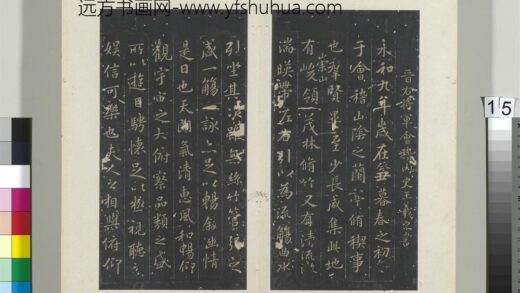 远方书画网- www.yfshuhua.com
晉右將軍會稽內史王羲之書
永和九年歲在癸丑暮春之初會
于會稽山陰之蘭亭脩禊事
也羣賢畢至少長咸集此地
有崇山峻領茂林脩竹又有清流激
湍暎帶左右引以為流觴曲水
列坐其次雖無絲竹管弦之
盛一觴一詠亦足以暢叙幽情
是日也天朗氣清惠風和暢仰
觀宇宙之大俯察品類之盛
所以遊目騁懷足以極視聽之
娛信可樂也夫人之相與俯仰
15